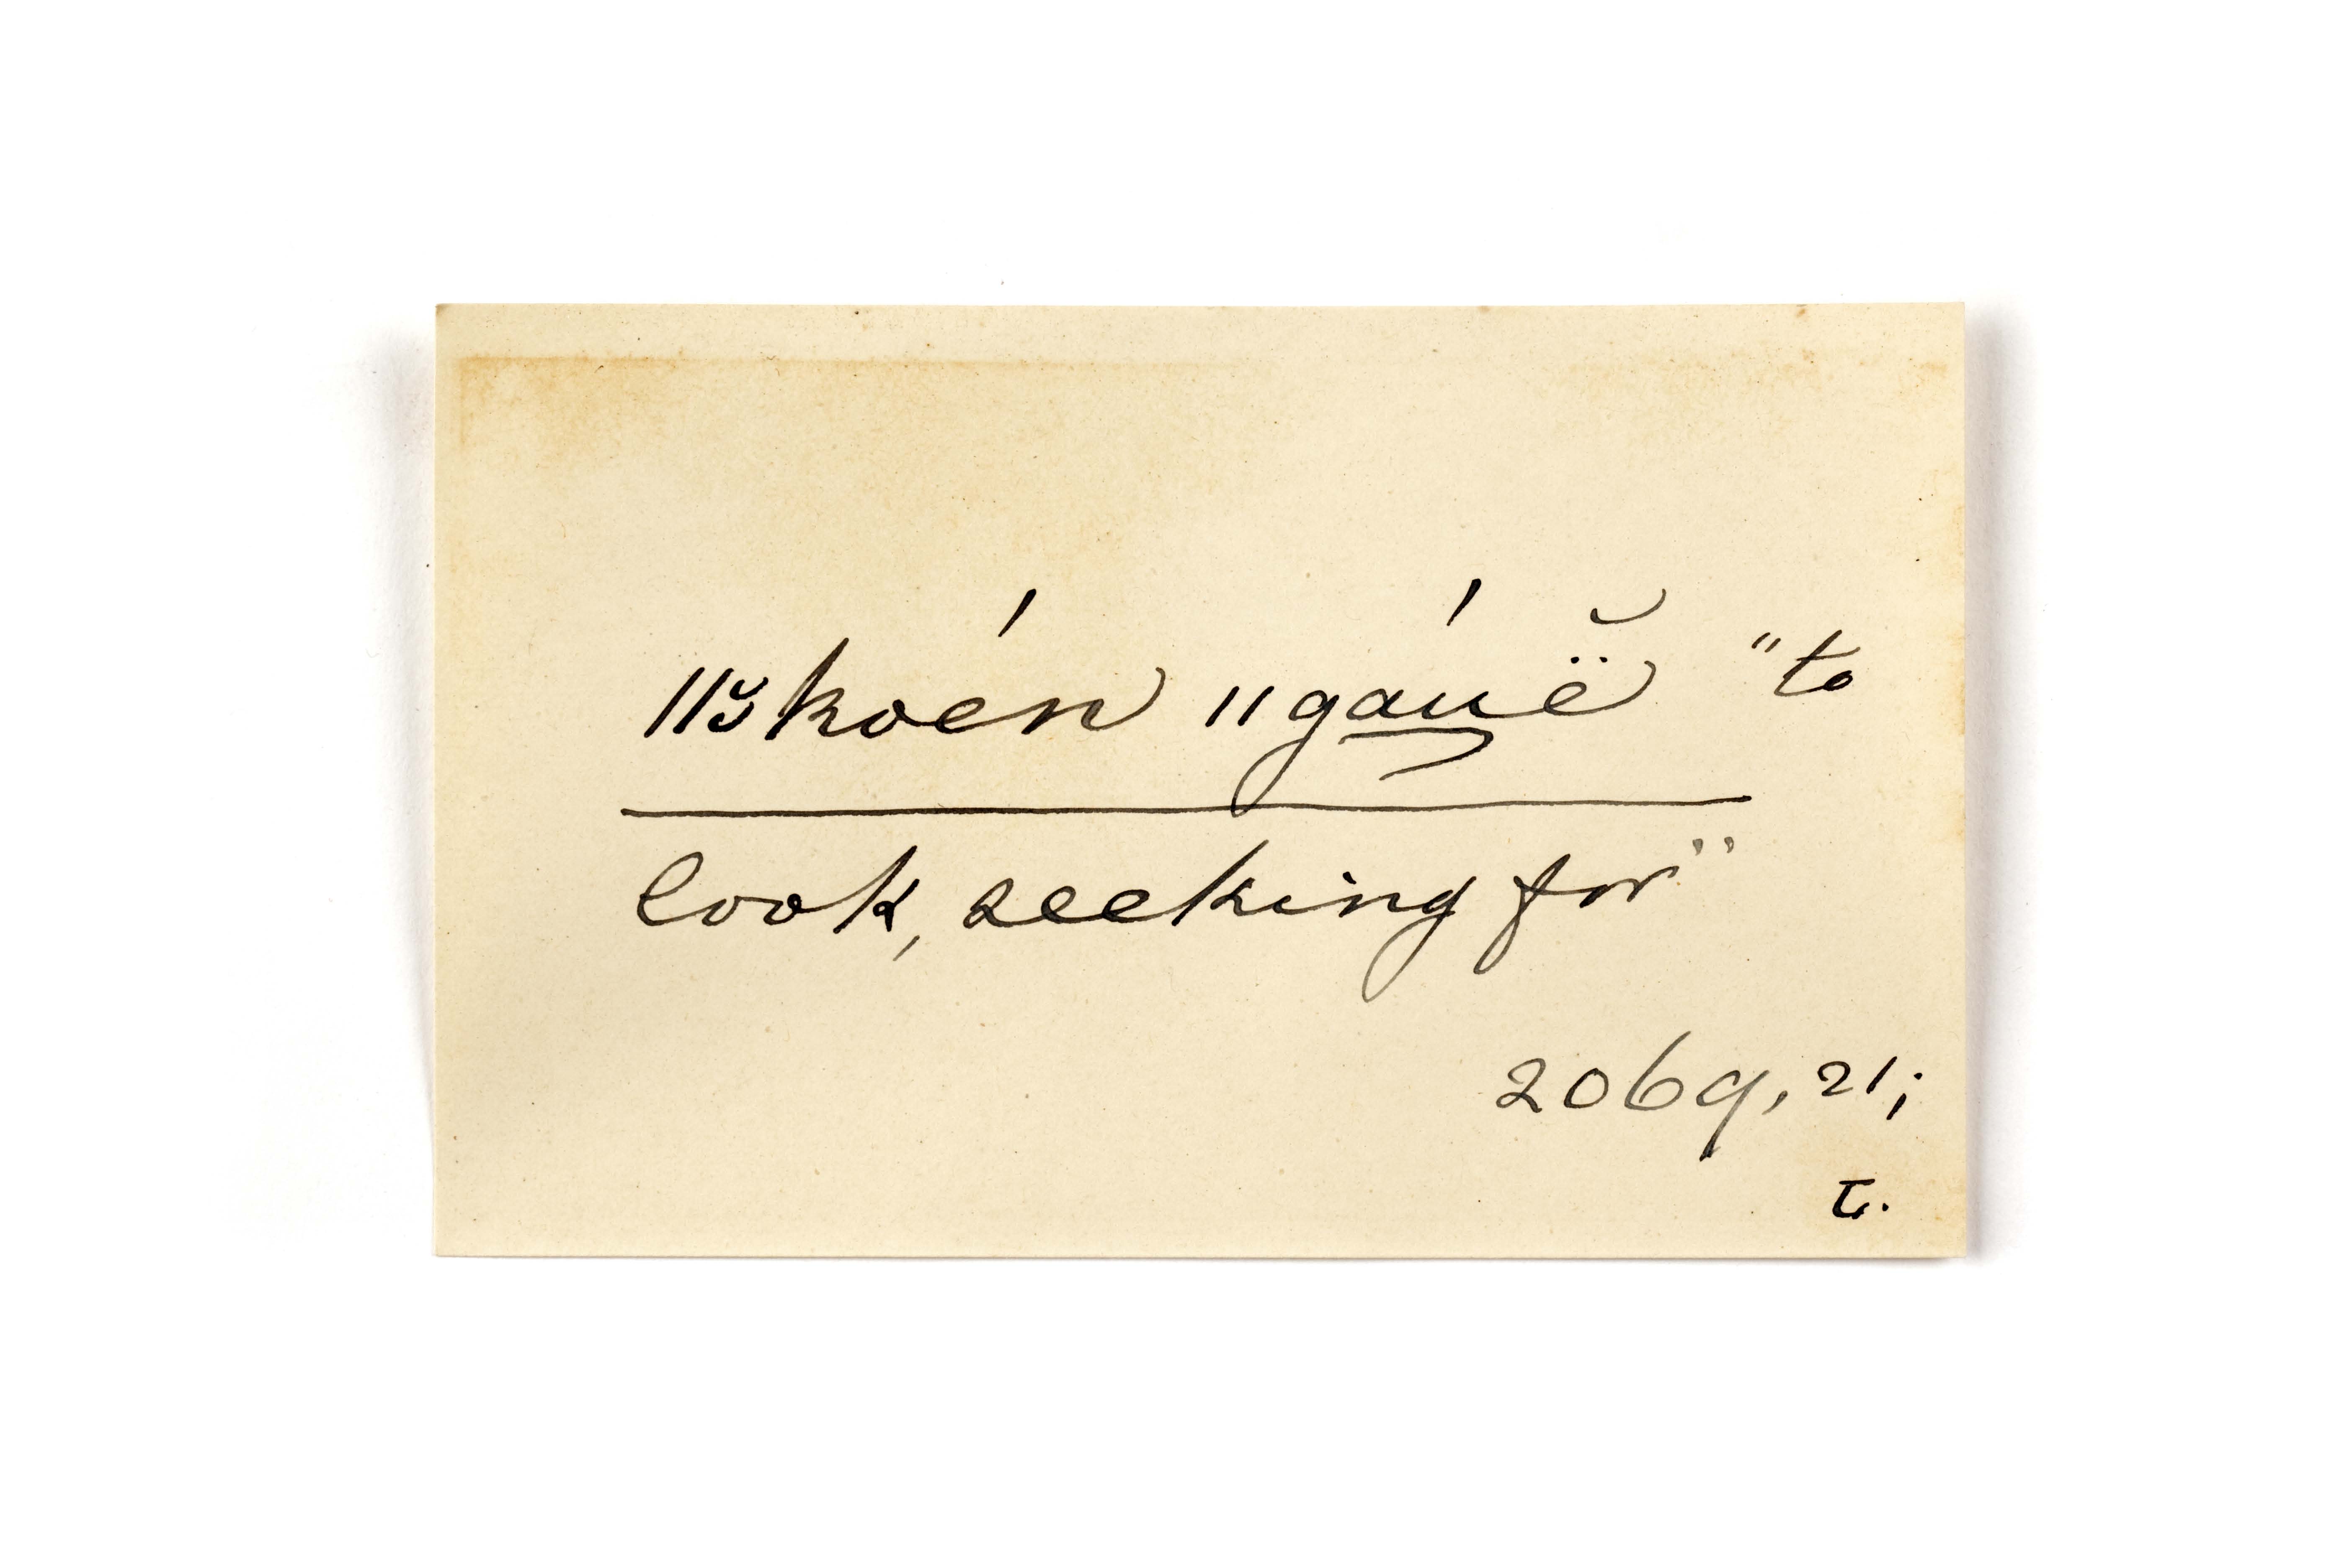 ǁɜ̆koén ǁgáu̱ë̆ "to
look, seeking for"
2069, 21;
T.